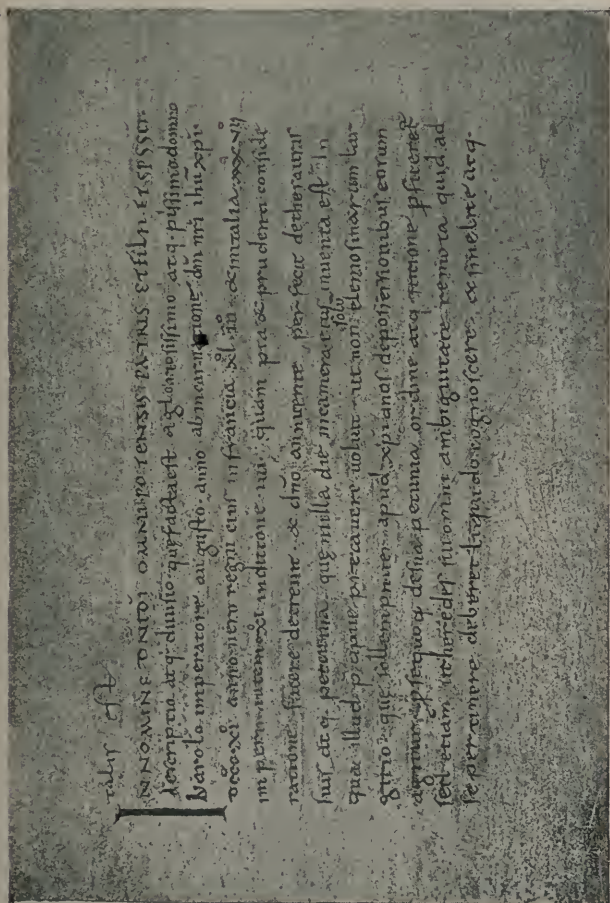 talis est
IN NOMINE DNI DI OMNIPOTENSIS PATRIS ET FILII ET SPS SCI
descriptio atq. diuisio que facta est a gloriosissimo atq. piissimo domno
karolo imperatore augusto. anno ab incarnatione dni nri ihu xpi.
dcccxi anno uero regni eius in francia xl iii & in italia xxx vii
imperii autem xi indictione iiii. quam pia & prudenti conside
ratione facere decreuit. & dno annuente perfecit de thesauris
suis atq. pecunia que in illa die in camera eius inuenta est. In
qua illud precipue precauere uoluit. ut non solu elemosinarum lar
gitio. que sollempniter apud xpianos de possessionibus eorum
agitur. p se quoq de sua pecunia ordine atq ratione pficeret
sed etiam ut heredes sui omni ambiguitate remota. quid ad
se pertinere deberet liquido cognoscere. & sine lite atq.